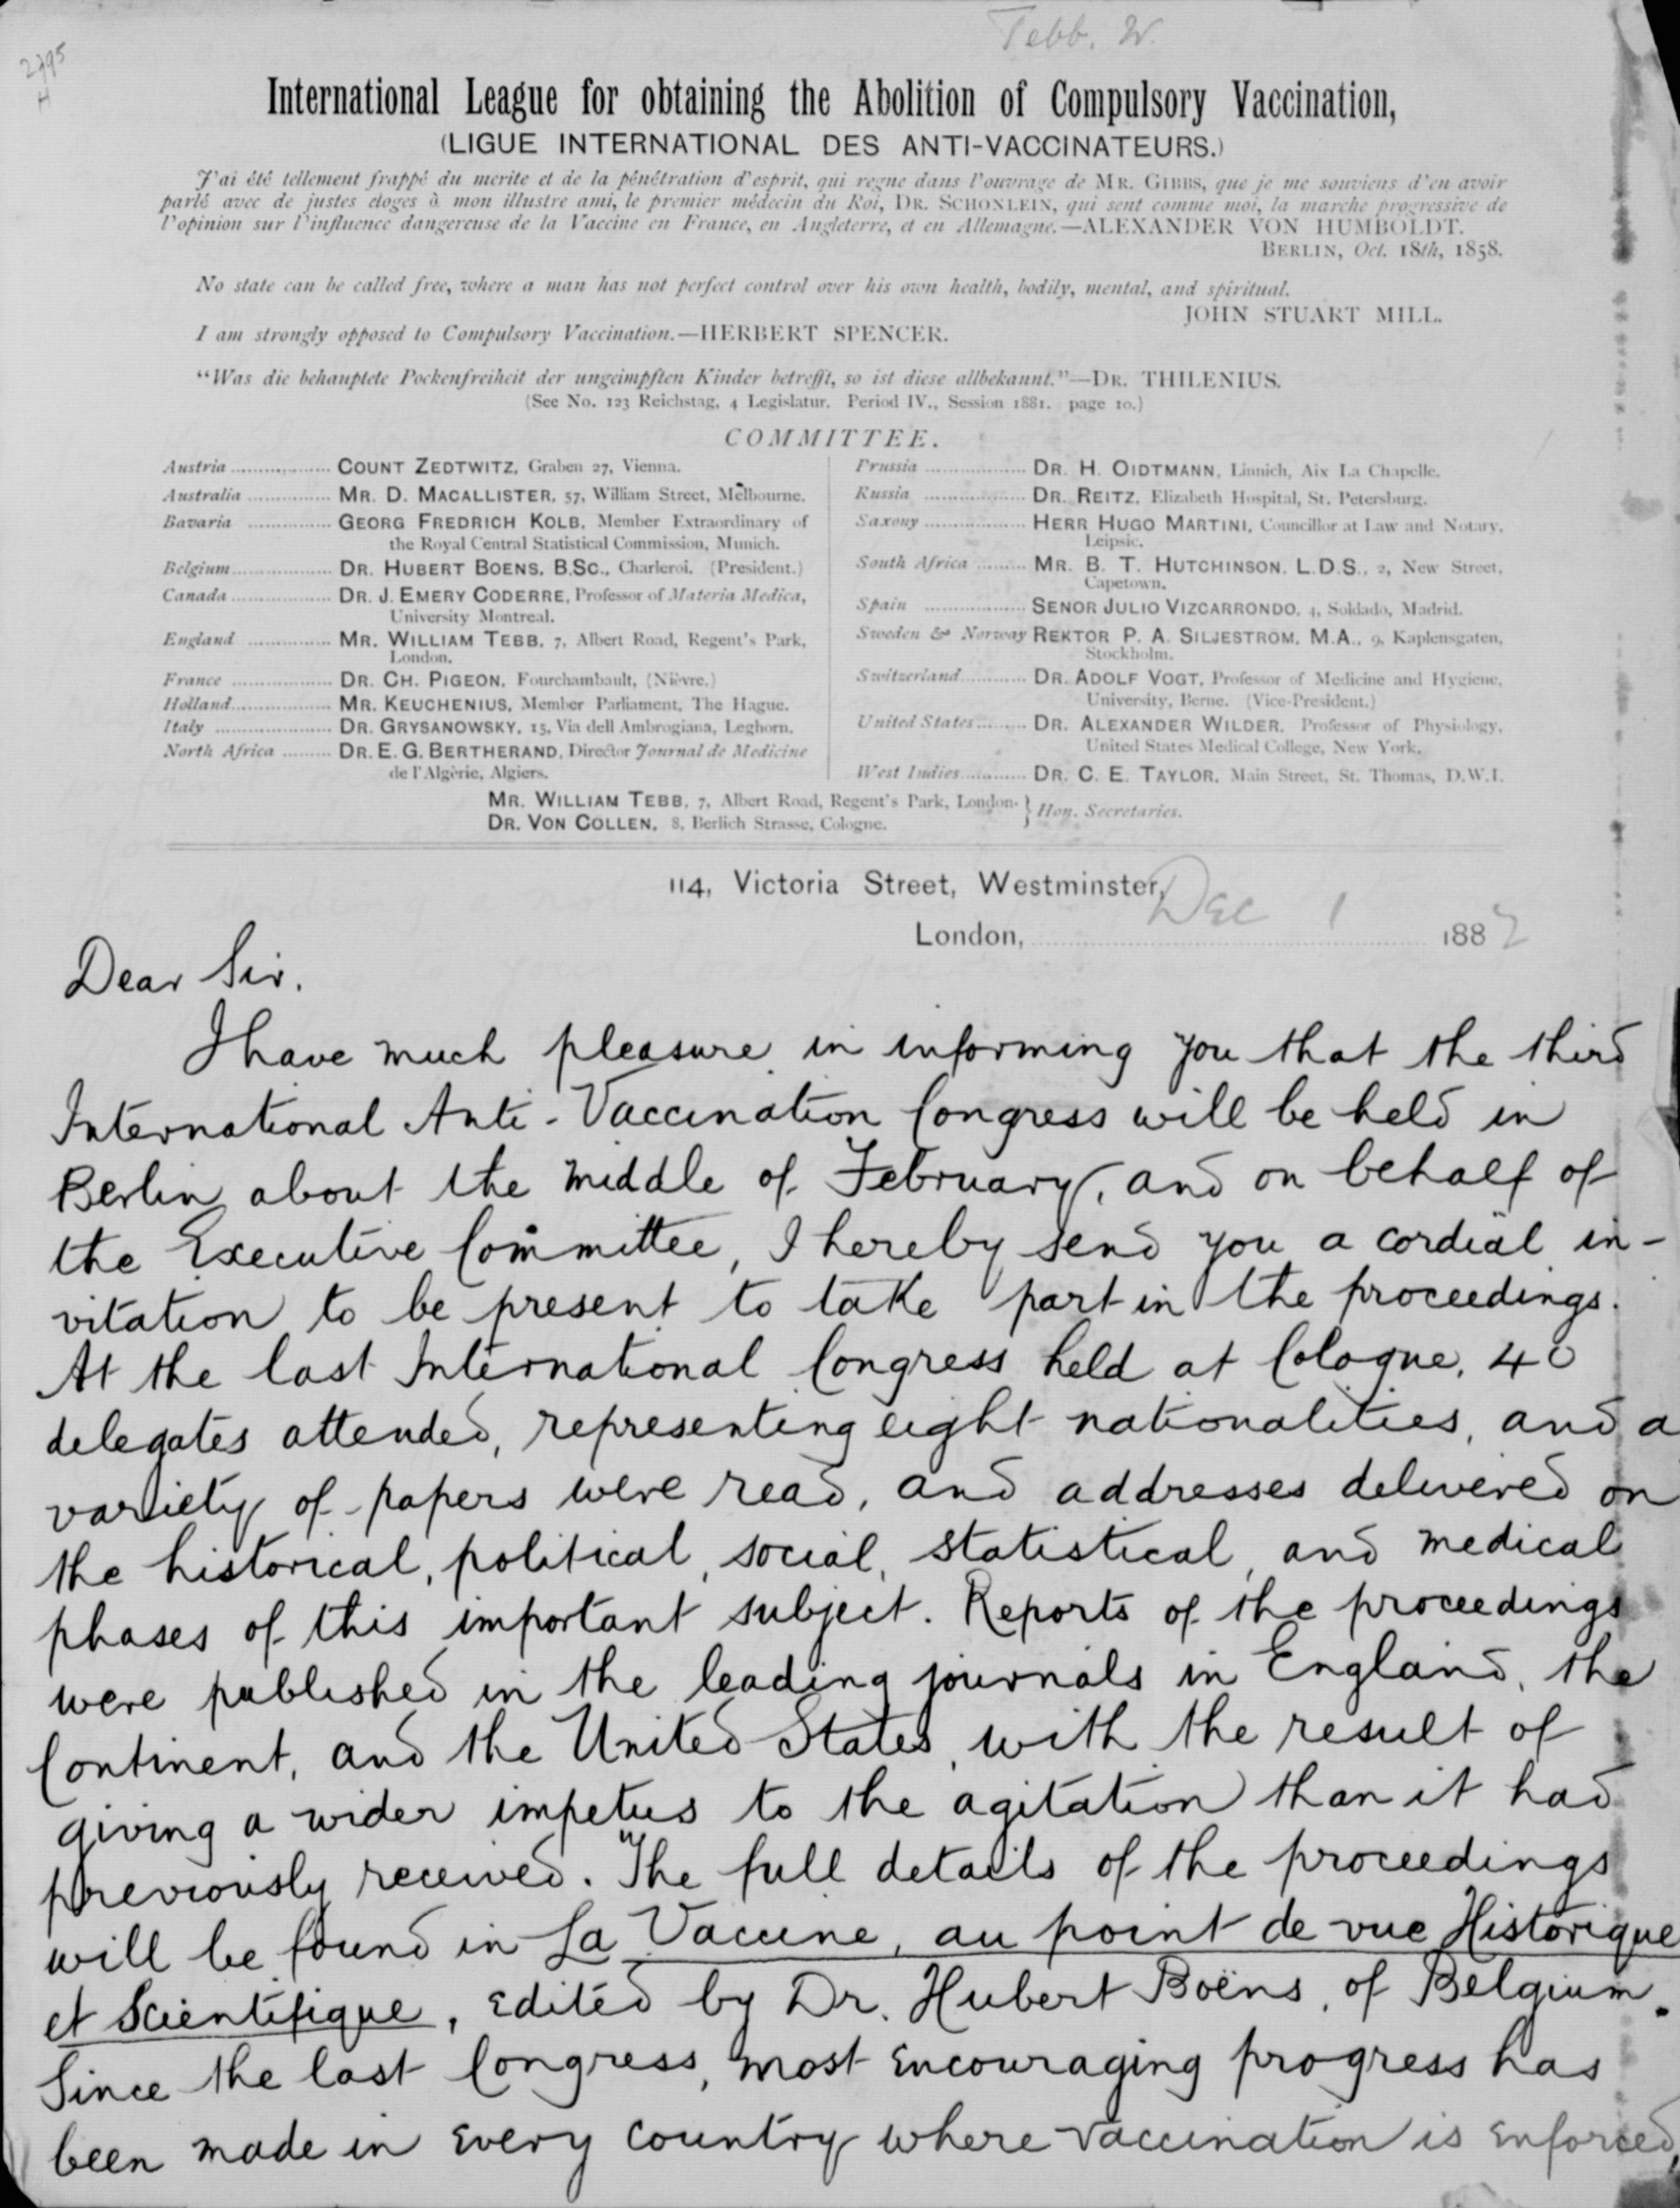 Tebb. W.
2795
H
International League for obtaining the Abolition of Compulsory Vaccination,
(LIGUE INTERNATIONAL DES ANTI-VACCINATEURS.)
J'ai été tellement frappé du merite et de la pénétration d'esprit, qui regne dans l'ouvrage de MR. GIBBS, que je me souviens d'en avoir
parlé avec de justes eloges à mon illustre ami, le premier médecin du Roi, DR. SCHONLEIN, qui sent comme moi, la marche progressive de
l'opinion sur l'influence dangereuse de la Vaccine en France, en Angleterre, et en Allemagne.—ALEXANDER VON HUMBOLDT.
BERLIN, Oct. 18th, 1858.
No state can be called free, where a man has not perfect control over his own health, bodily, mental, and spiritual.
JOHN STUART MILL.
I am strongly opposed to Compulsory Vaccination.—HERBERT SPENCER.
"Was die behauptete Pockenfreiheit der ungeimpften Kinder betrefft, so ist diese allbekannt."—DR. THILENIUS.
(See No. 123 Reichstag, 4 Legislatur. Period IV., Session 1881. page 10.)
COMMITTEE.
Austria .................. COUNT ZEDTWITZ, Graben 27, Vienna.
Australia ............... MR. D. MACALLISTER, 57, William Street, Melbourne.
Bavaria ............... GEORG FREDRICH KOLB, Member Extraordinary of
the Royal Central Statistical Commission, Munich.
Belgium.................. DR. HUBERT BOENS, B.SC., Charleroi. (President.)
Canada .................. DR. J. EMERY CODERRE, Professor of Materia Medica,
University Montreal.
England ............... MR. WILLIAM TEBB, 7, Albert Road, Regent's Park,
London.
France .................. DR. CH. PIGEON, Fourchambault, (Nièvre.)
Holland.................. MR. KEUCHENIUS, Member Parliament, The Hague.
Italy ..................... DR. GRYSANOWSKY, 15, Via dell Ambrogiana, Leghorn.
North Africa ......... DR. E. G. BERTHERAND, Director Journal de Medicine
de l'Algèrie, Algiers.
Prussia .................. DR. H. OIDTMANN, Linnich, Aix La Chapelle.
Russia .................. DR. REITZ, Elizabeth Hospital, St. Petersburg.
Saxony .................. HERR HUGO MARTINI, Councillor at Law and Notary,
Leipsic.
South Africa ......... MR. B. T. HUTCHINSON, L.D.S., 2, New Street,
Capetown.
Spain .................. SENOR JULIO VIZCARRONDO, 4, Soldado, Madrid.
Sweden & Norway REKTOR P. A. SILJESTROM, M.A., 9, Kaplensgaten,
Stockholm.
Switzerland............ DR. ADOLF VOGT, Professor of Medicine and Hygiene,
University, Berne. (Vice-President.)
United States......... DR. ALEXANDER WILDER, Professor of Physiology,
United States Medical College, New York.
West Indies............ DR. C. E. TAYLOR, Main Street, St. Thomas, D.W.I.
MR. WILLIAM TEBB, 7, Albert Road, Regent's Park, London. } Hon. Secretaries.
DR. VON COLLEN, 8, Berlich Strasse, Cologne.
114, Victoria Street, Westminster,
London, Dec 1 1882
Dear Sir.
I have much pleasure in informing you that the third
International Anti-Vaccination Congress will be held in
Berlin about the middle of February, and on behalf of
the Executive Committee, I hereby send you a cordial in-
vitation to be present to take part in the proceedings.
At the last International Congress held at Cologne, 40
delegates attended, representing eight nationalities, and a
variety of papers were read, and addresses delivered on
the historical, political, social, statistical, and medical
phases of this important subject. Reports of the proceedings
were published in the leading journals in England, the
Continent, and the United States, with the result of
giving a wider impetus to the agitation than it had
previously received. The full details of the proceedings
will be found in La Vaccine, au point de vue Historique
et Scientifique, edited by Dr. Hubert Boëns, of Belgium.
Since the last Congress, most encouraging progress has
been made in every country where vaccination is enforced,